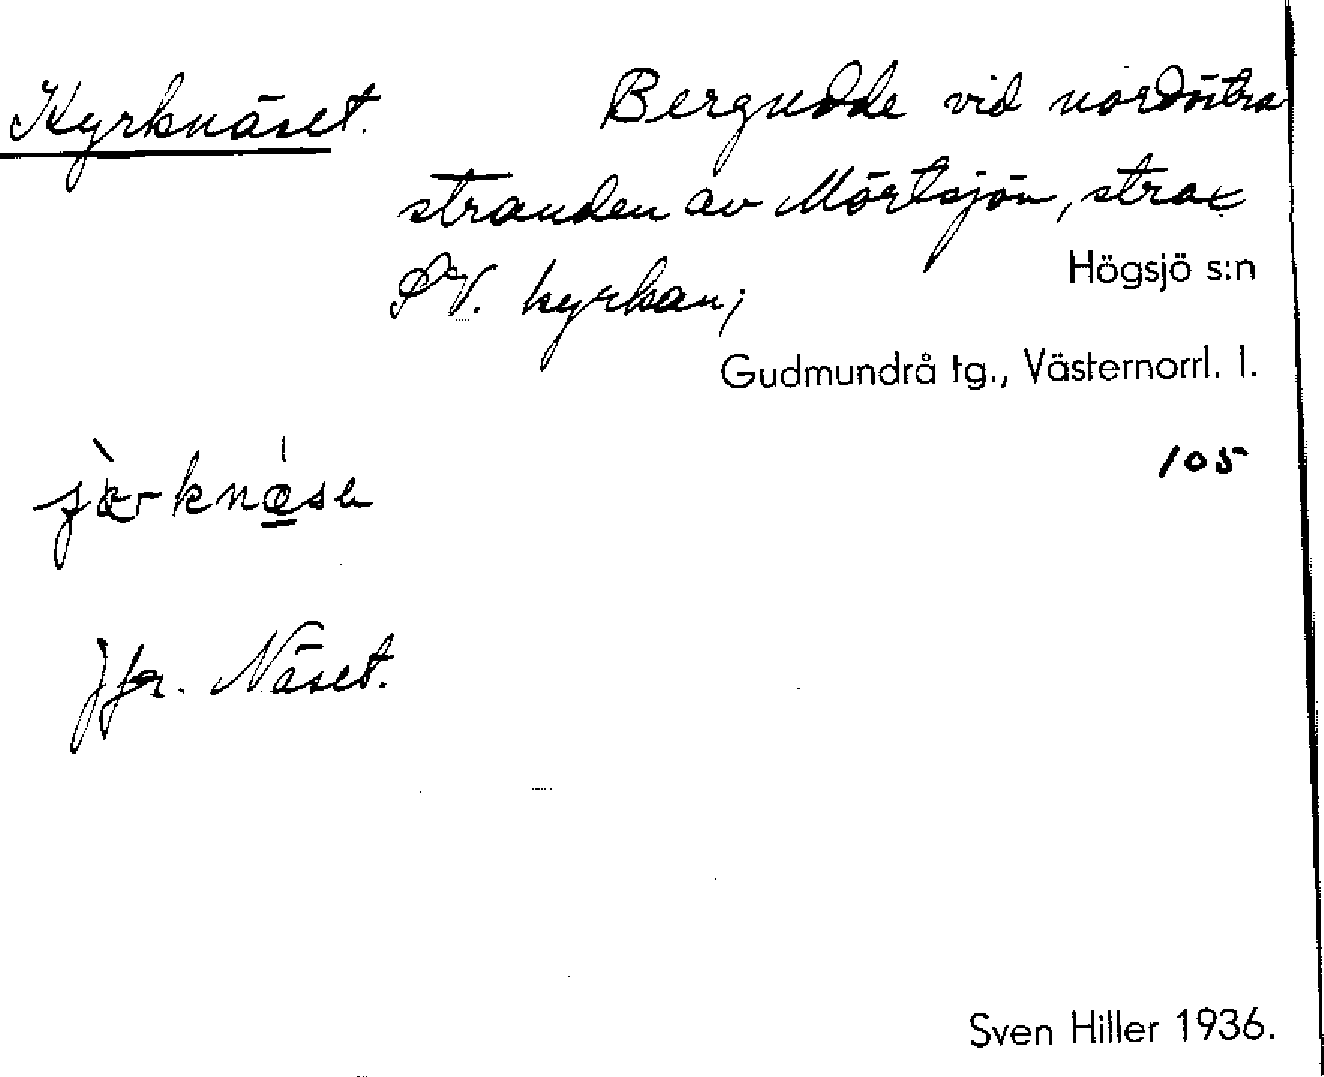 Kyrknäset. Bergudde vid nordöstra
stranden av Mörtsjön, strax
SV. kyrkan;
Högsjö s:n
Gudmundrå tg., Västernorrl. l.
105
Jfr. Näset.
Sven Hiller 1936.